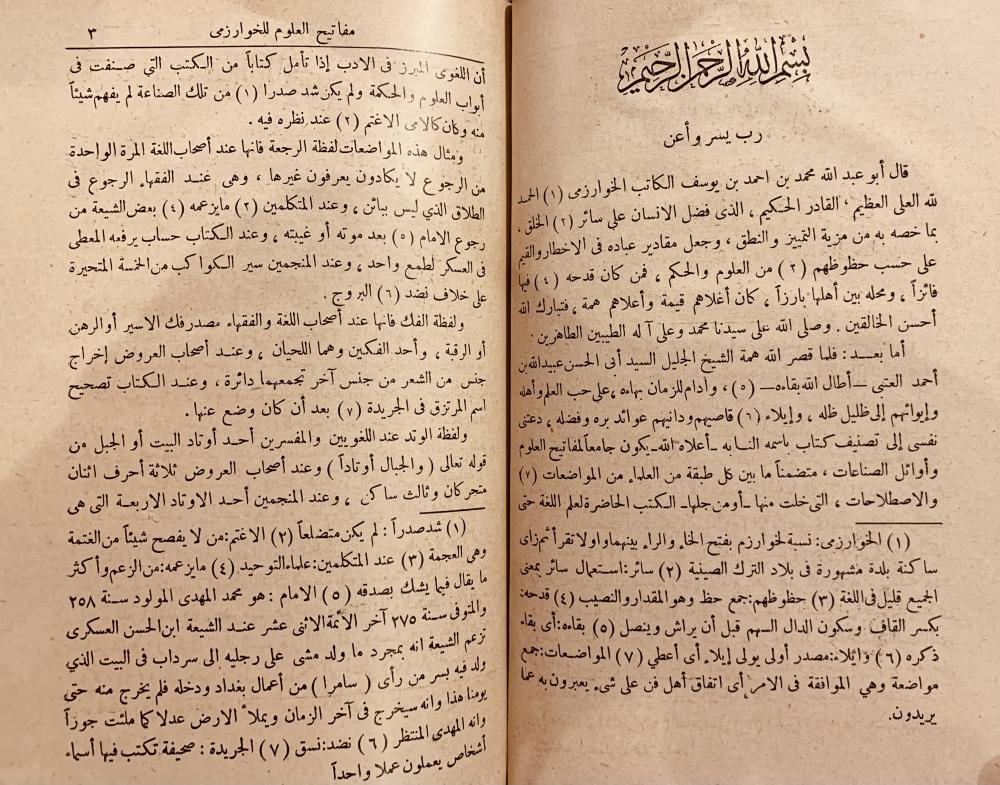 بسم الله الرحمن الرحيم
رب يسر وأعن
قال أبو عبد الله محمد بن احمد بن يوسف الكاتب الخوارزمى (١) الحمد
لله العلى العظيم ، القادر الحكيم ، الذى فضل الانسان على سائر (٢) الخلق ،
بما خصه به من مزية التمييز والنطق ، وجعل مقادير عباده فى الاخطار والقيم
على حسب حظوظهم (٢) من العلوم والحكم ، فمن كان قدحه (٤) فيها
فائزاً ، ومحله بين أهلها بارزاً ، كان أغلاهم قيمة وأعلاهم همة ، فتبارك الله
أحسن الخالقين . وصلى الله على سيدنا محمد وعلى آله الطيبين الطاهرين .
أما بعد : فلما قصر الله همة الشيخ الجليل السيد أبى الحسن عبيدالله بن
أحمد العتبى —أطال الله بقاءه— (٥) ، وادام للزمان بهاءه ، على حب العلم وأهله
وإيوائهم إلى ظليل ظله ، وإيلاء (٦) قاصيهم ودانيهم عوائد بره وفضله ، دعتنى
نفسى إلى تصنيف كتاب باسمه النابه ـ أعلاه الله ـ يكون جامعاً لمفاتيح العلوم
وأوائل الصناعات ، متضمناً ما بين كل طبقة من العلماء من المواضعات (٧)
والاصطلاحات ، التى خلت منها ـ أو من جلها ـ الكتب الحاضرة لعلم اللغة حتى
(١) الخوارزمى : نسبة لخوارزم بفتح الخاء والراء بينهما واو لا تقرأ ثم زاى
ساكنة بلدة مشهورة فى بلاد الترك الصينية (٢) سائر : استعمال سائر بمعنى
الجميع قليل فى اللغة (٣) حظوظهم : جمع حظ وهو المقدار والنصيب (٤) قدحه :
بكسر القاف وسكون الدال السهم قبل أن يراش وينصل (٥) بقاءه : أى بقاء
ذكره (٦) وإيلاء : مصدر أولى يولى إيلاء أى أعطى (٧) المواضعات : جمع
مواضعة وهي الموافقة فى الامر أى اتفاق أهل فن على شىء يعبرون به عما
يريدون .
مفاتيح العلوم للخوارزمى ٣
أن اللغوى المبرز فى الادب إذا تأمل كتاباً من الكتب التي صنفت فى
أبواب العلوم والحكمة ولم يكن شد صدرا (١) من تلك الصناعة لم يفهم شيئاً
منه وكان كالامى الاغتم (٢) عند نظره فيه .
ومثال هذه المواضعات لفظة الرجعة فانها عند أصحاب اللغة المرة الواحدة
من الرجوع لا يكادون يعرفون غيرها ، وهى عند الفقهاء الرجوع فى
الطلاق الذي ليس ببائن ، وعند المتكلمين (٢) مايزعمه (٤) بعض الشيعة من
رجوع الامام (٥) بعد موته أو غيبته ، وعند الكتاب حساب يرفعه المعطى
فى العسكر لطمع واحد ، وعند المنجمين سير الكواكب من الخمسة المتحيرة
على خلاف نضد (٦) البروج .
ولفظة الفك فانها عند أصحاب اللغة والفقهاء مصدر فك الاسير أو الرهن
أو الرقبة ، وأحد الفكين وهما اللحيان ، وعند أصحاب العروض إخراج
جنس من الشعر من جنس آخر تجمعهما دائرة ، وعند الكتاب تصحيح
اسم المرتزق فى الجريدة (٧) بعد أن كان وضع عنها .
ولفظة الوتد عند اللغويين والمفسرين أحد أوتاد البيت أو الجبل من
قوله تعالى ( والجبال أوتاداً ) وعند أصحاب العروض ثلاثة أحرف اثنان
متحركان وثالث ساكن ، وعند المنجمين أحد الاوتاد الاربعة التى هى
(١) شد صدراً : لم يكن متضلعاً (٢) الاغتم : من لا يفصح شيئاً من الغتمة
وهى العجمة (٣) عند المتكلمين : علماء التوحيد (٤) مايزعمه : من الزعم وأكثر
ما يقال فيما يشك بصدقه (٥) الامام : هو محمد المهدى المولود سنة ٢٥٨
والمتوفى سنة ٢٧٥ آخر الأئمة الاثنى عشر عند الشيعة ابن الحسن العسكرى
تزعم الشيعة انه بمجرد ما ولد مشى على رجليه الى سرداب فى البيت الذي
ولد فيه بسر من رأى ( سامرا ) من أعمال بغداد ودخله فلم يخرج منه حتى
يومنا هذا وانه سيخرج فى آخر الزمان ويملأ الارض عدلا كما ملئت جوراً
وانه المهدى المنتظر (٦) نضد : نسق (٧) الجريدة : صحيفة تكتب فيها أسماء
أشخاص يعملون عملا واحداً